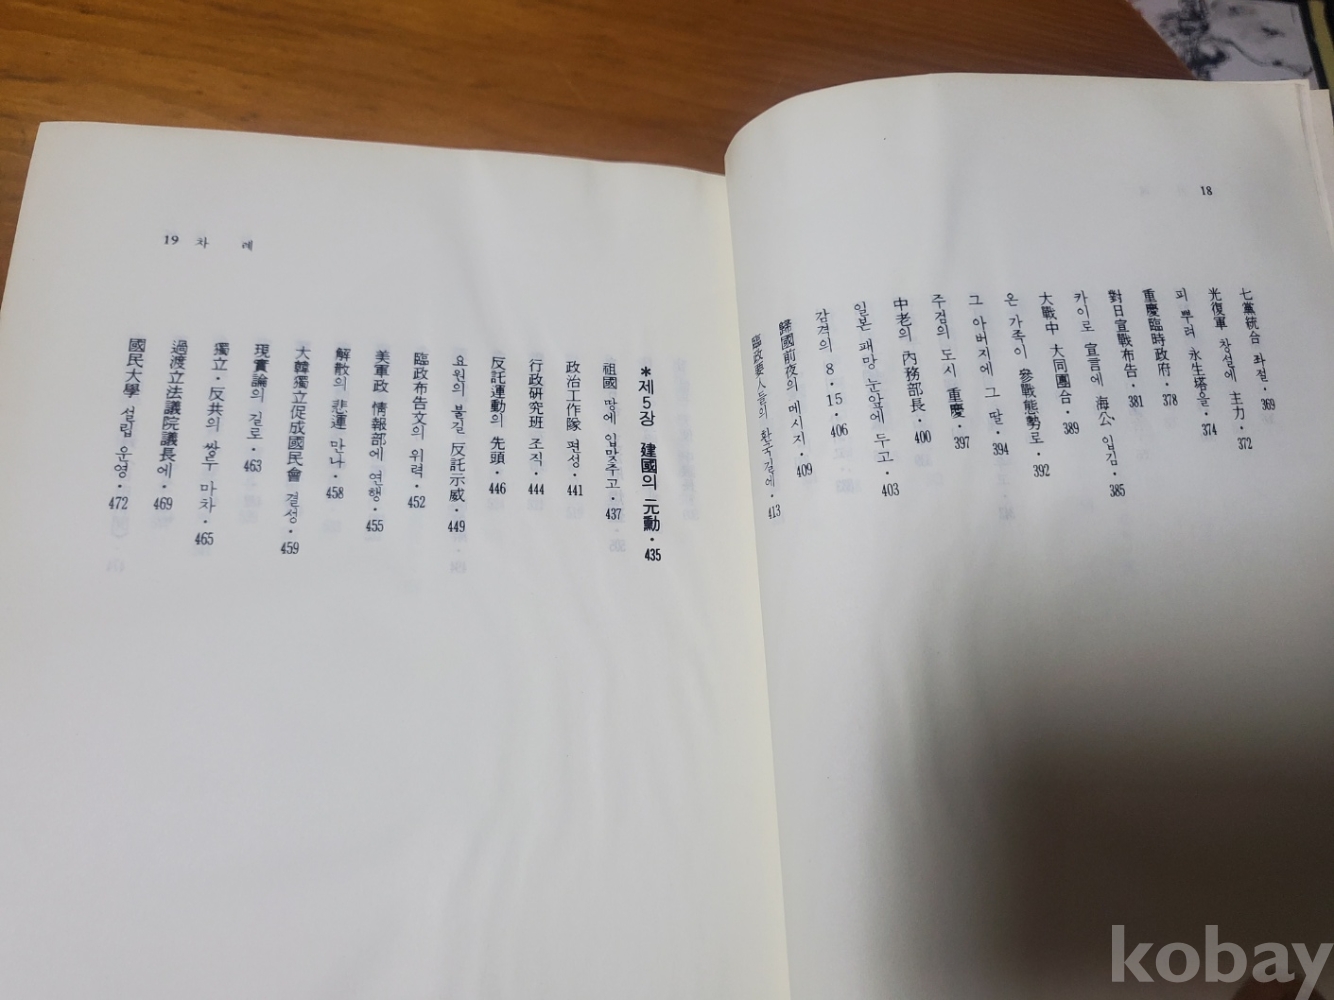 18
七黨統合 좌절·369
光復軍 창설에 主力·372
피 뿌려 永生塔을·374
重慶臨時政府·378
對日宣戰布告·381
카이로 宣言에 海公 입김·385
大戰中 大同團合·389
온 가족이 參戰態勢로·392
그 아버지에 그 딸·394
주검의 도시 重慶·397
中老의 內務部長·400
일본 패망 눈앞에 두고·403
감격의 8·15·406
歸國前夜의 메시지·409
臨政要人들의 환국길에·413
19 차 례
*제5장 建國의 元勳·435
祖國 땅에 입맞추고·437
政治工作隊 편성·441
行政研究班 조직·444
反託運動의 先頭·446
요원의 불길 反託示威·449
臨政布告文의 위력·452
美軍政 情報部에 연행·455
解散의 悲運 만나·458
大韓獨立促成國民會 결성·459
現實論의 길로·463
獨立·反共의 쌍두마차·465
過渡立法議院議長에·469
國民大學 설립 운영·472
kobay